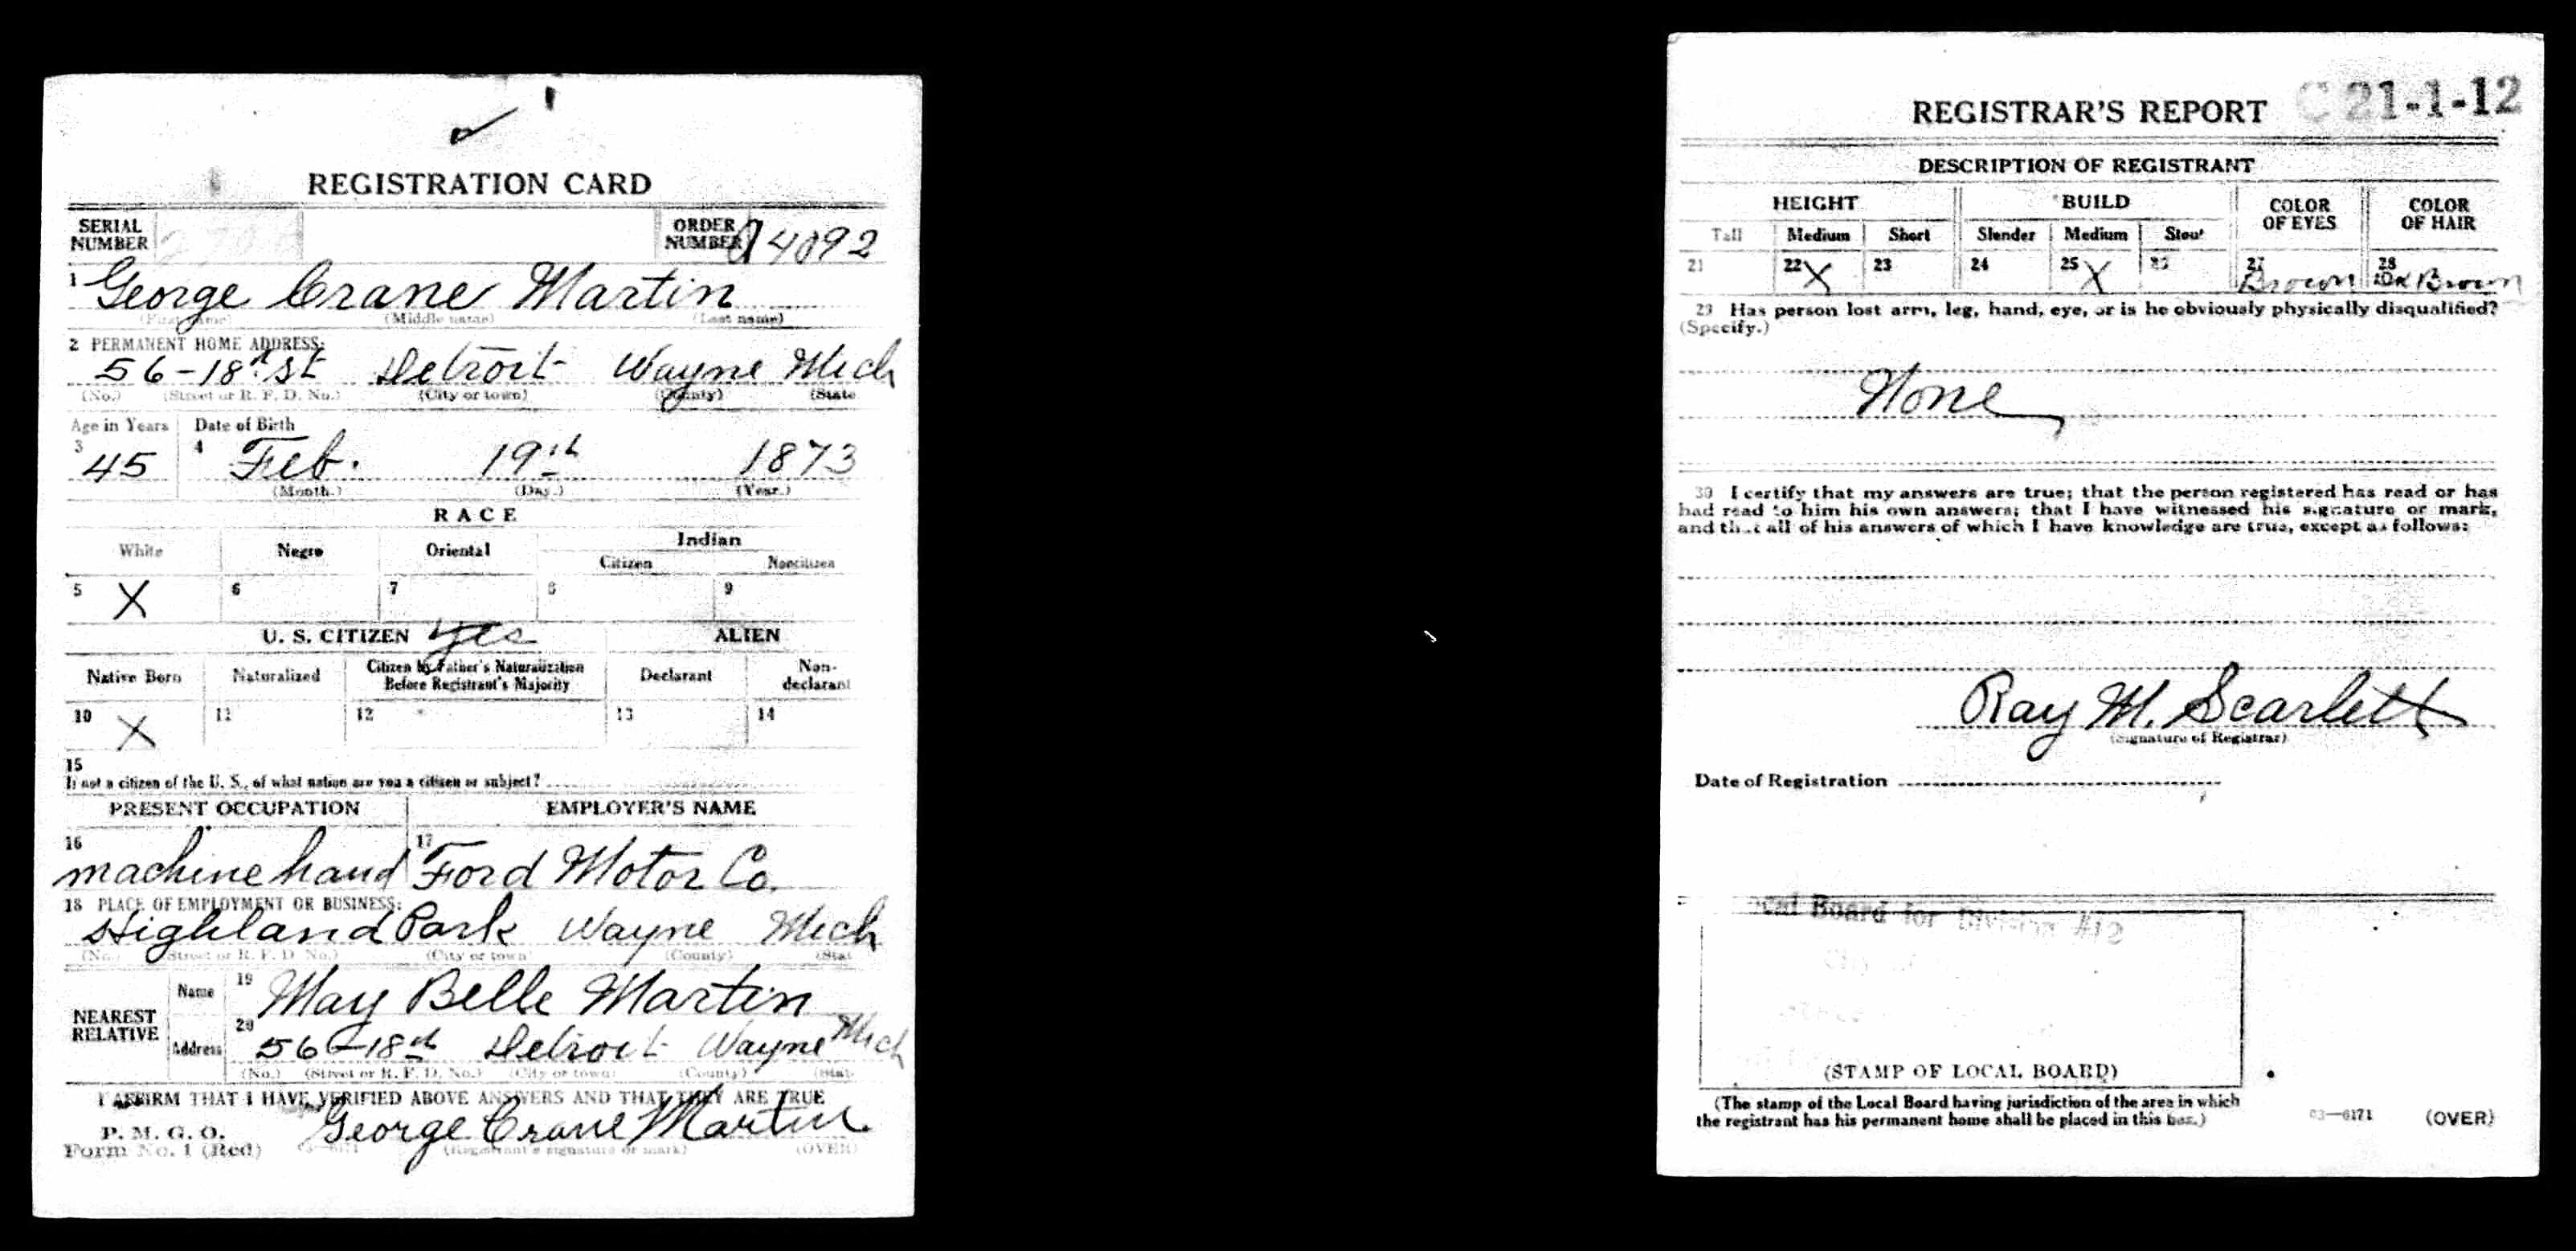 REGISTRATION CARD
SERIAL NUMBER
ORDER NUMBER A4092
1 George Crane Martin
(First name) (Middle name) (Last name)
2 PERMANENT HOME ADDRESS:
56-18th St Detroit Wayne Mich
(No.) (Street or R. F. D. No.) (City or town) (County) (State
Age in Years Date of Birth
3 45 4 Feb. 19th 1873
(Month.) (Day.) (Year.)
RACE
White Negro Oriental Indian
Citizen Noncitizen
5 X 6 7 8 9
U. S. CITIZEN Yes ALIEN
Native Born Naturalized Citizen by Father's Naturalization Before Registrant's Majority Declarant Non-declarant
10 X 11 12 13 14
15
If not a citizen of the U. S., of what nation are you a citizen or subject?
PRESENT OCCUPATION EMPLOYER'S NAME
16 machine hand 17 Ford Motor Co.
18 PLACE OF EMPLOYMENT OR BUSINESS:
Highland Park Wayne Mich
(No.) (Street or R. F. D. No.) (City or town) (County) (Stat
NEAREST RELATIVE
Name 19 May Belle Martin
Address 20 56-18th Detroit Wayne Mich
(No.) (Street or R. F. D. No.) (City or town) (County) (Stat
I AFFIRM THAT I HAVE VERIFIED ABOVE ANSWERS AND THAT THEY ARE TRUE
P. M. G. O.
Form No. 1 (Red) George Crane Martin
(Registrant's signature or mark) (OVER)
REGISTRAR'S REPORT C 21-1-12
DESCRIPTION OF REGISTRANT
HEIGHT BUILD COLOR OF EYES COLOR OF HAIR
Tall Medium Short Slender Medium Stout
21 22 X 23 24 25 X 26 27 Brown 28 Dk Brown
29 Has person lost arm, leg, hand, eye, or is he obviously physically disqualified?
(Specify.)
None
30 I certify that my answers are true; that the person registered has read or has
had read to him his own answers; that I have witnessed his signature or mark,
and that all of his answers of which I have knowledge are true, except as follows:
Ray M. Scarlett
(Signature of Registrar)
Date of Registration
Local Board for Division #12
(STAMP OF LOCAL BOARD)
(The stamp of the Local Board having jurisdiction of the area in which
the registrant has his permanent home shall be placed in this box.)
03—6171 (OVER)